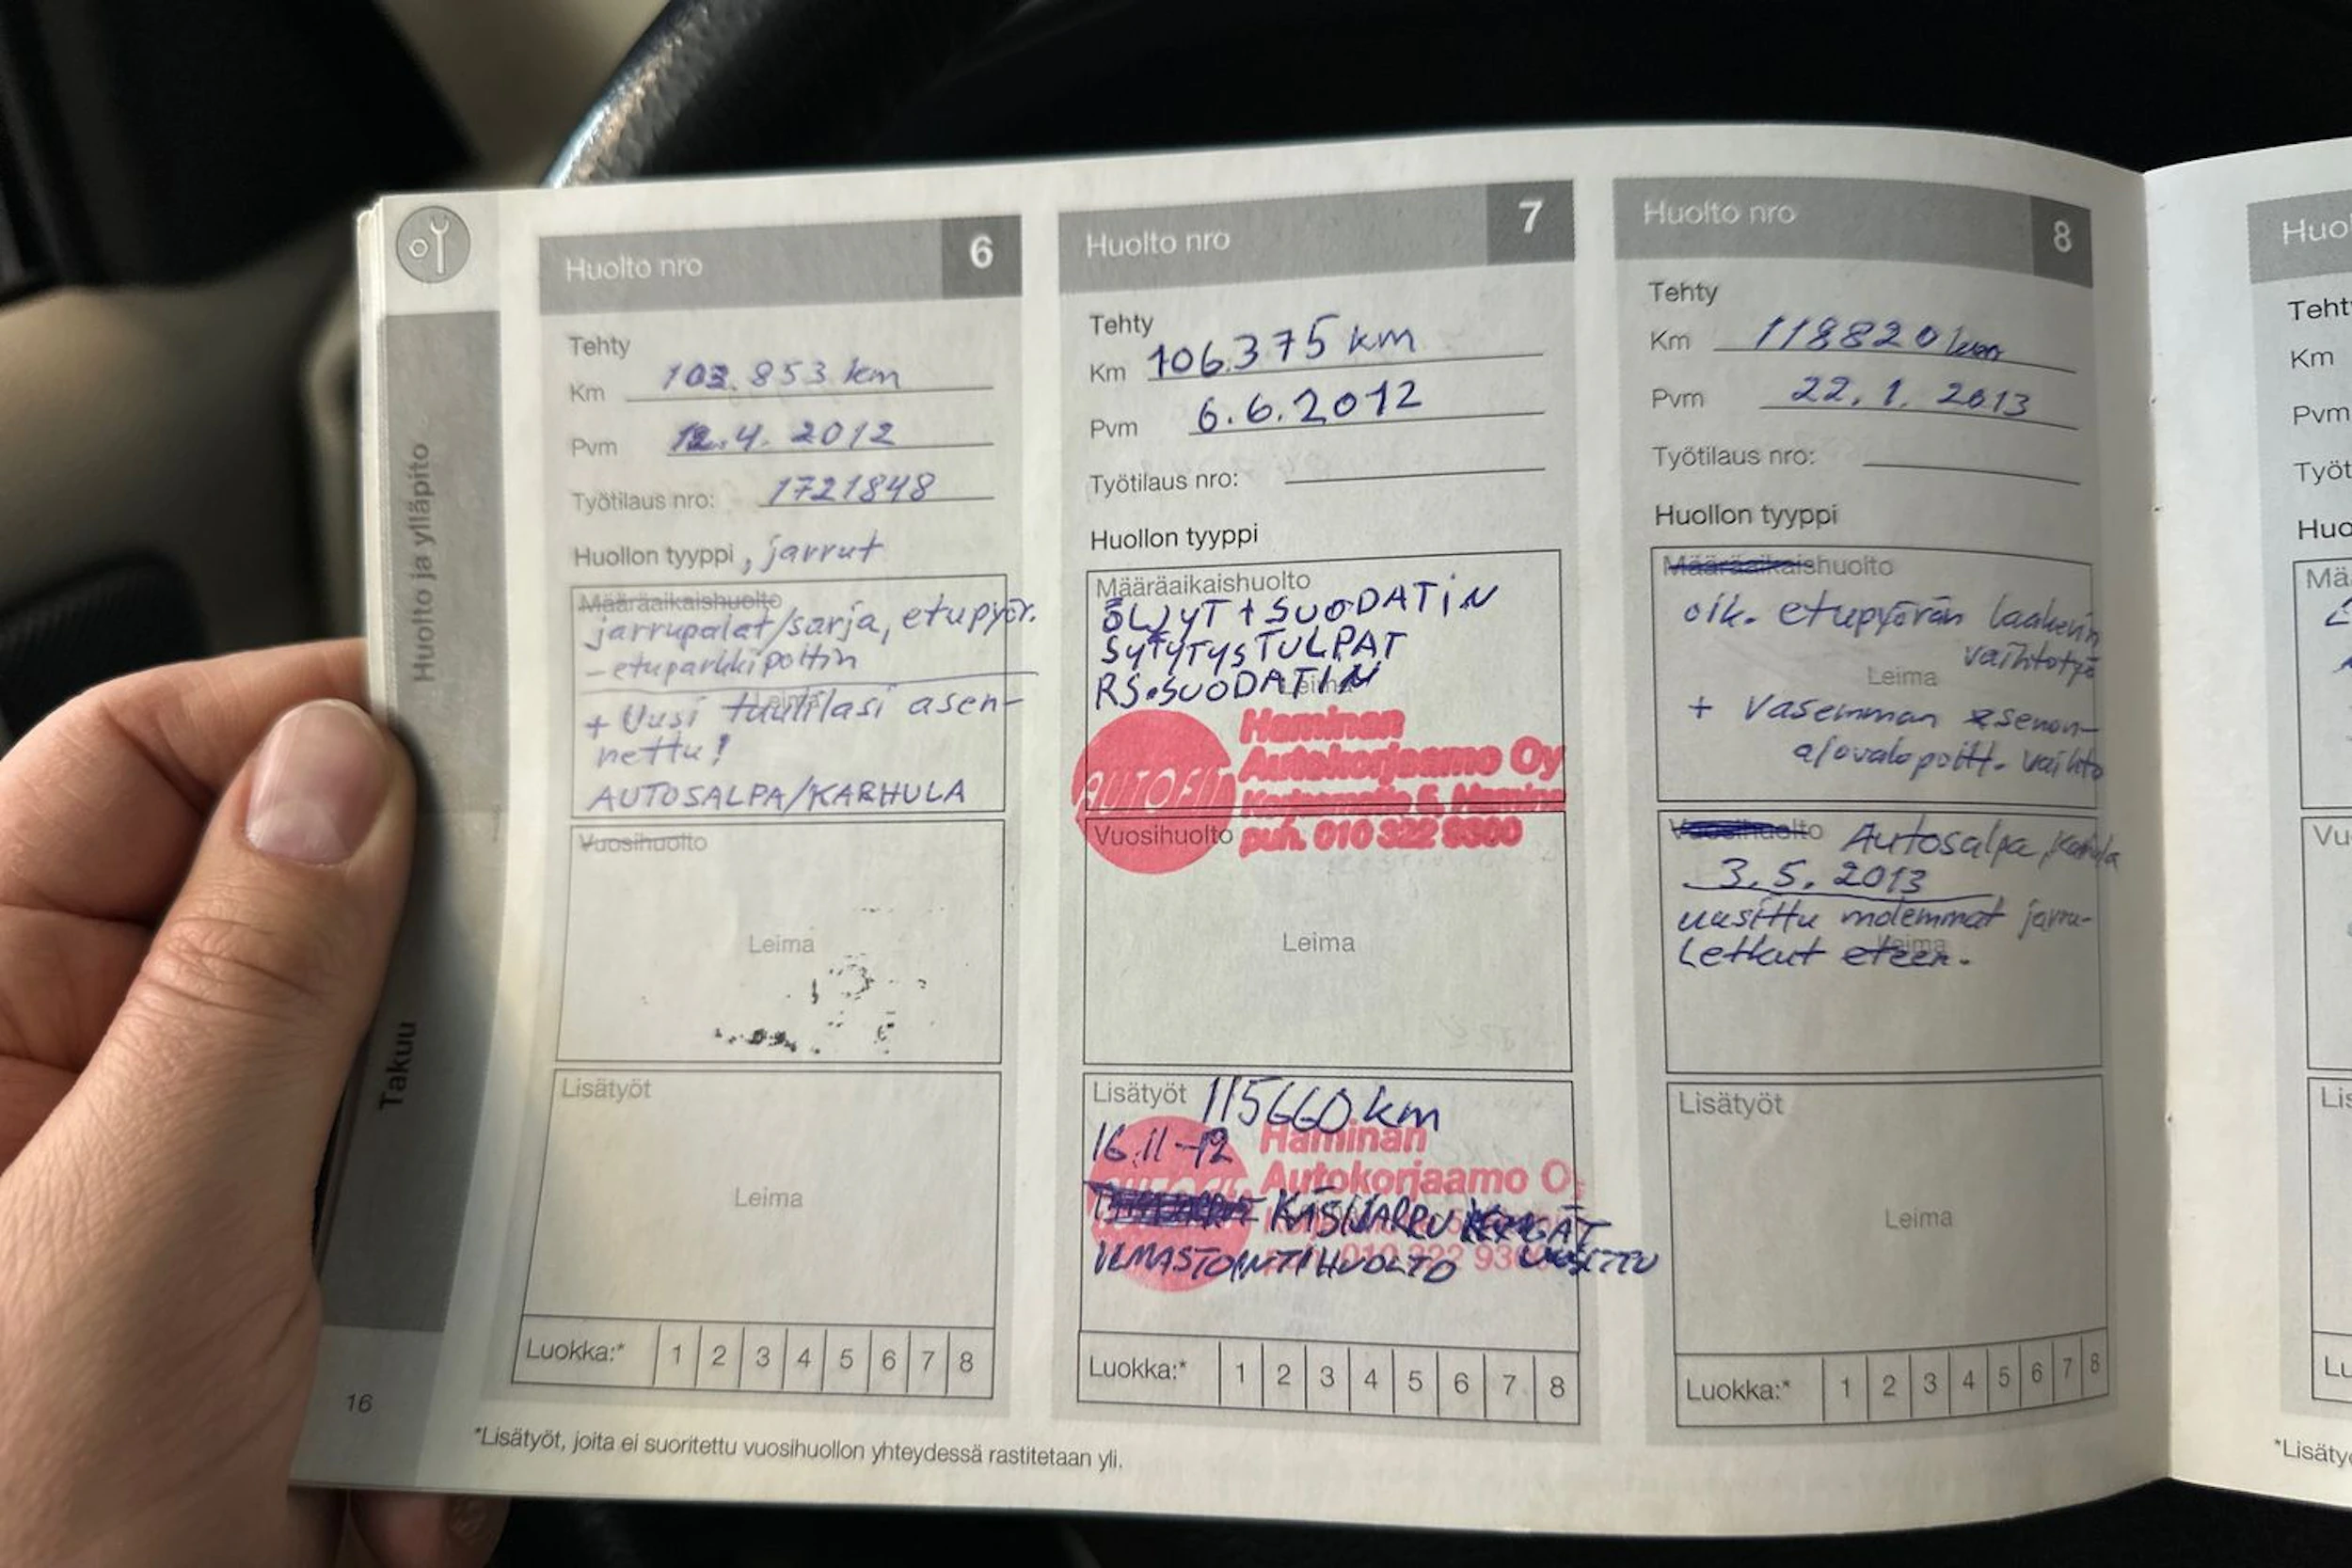 Huolto ja ylläpito
Takuu
16
Huolto nro 6
Tehty
Km 103.853 km
Pvm 12.4. 2012
Työtilaus nro: 1721848
Huollon tyyppi, jarrut
Määräaikaishuolto
jarrupalat/sarja, etupyör.
- etuparkkipoltin
+ Uusi tuulilasi asen-
nettu!
AUTOSALPA/KARHULA
Vuosihuolto
Leima
Lisätyöt
Leima
Luokka:* 1 2 3 4 5 6 7 8
Huolto nro 7
Tehty
Km 106.375 km
Pvm 6.6.2012
Työtilaus nro:
Huollon tyyppi
Määräaikaishuolto
ÖLJYT + SUODATIN
SYTYTYSTULPAT
RS.SUODATIN
Leima
Haminan
Autokorjaamo Oy
AUTOFIT
Hamina
puh. 010 322 9300
Vuosihuolto
Leima
Lisätyöt 115660 km
16.11-12
Haminan
Autokorjaamo
KÄSIJARRU
UUSITTU
ILMASTOINTIHUOLTO
Luokka:* 1 2 3 4 5 6 7 8
Huolto nro 8
Tehty
Km 118820 km
Pvm 22.1. 2013
Työtilaus nro:
Huollon tyyppi
Määräaikaishuolto
oik. etupyörän laakerin
vaihtotyö
Leima
+ Vasemman
ajovalopoltt. vaihto
Vuosihuolto Autosalpa, Karhula
3.5. 2013
uusittu molemmat jarru-
letkut eteen.
Leima
Lisätyöt
Leima
Luokka:* 1 2 3 4 5 6 7 8
*Lisätyöt, joita ei suoritettu vuosihuollon yhteydessä rastitetaan yli.
Huo
Teht
Km
Pvm
Työt
Huo
Mä
Vu
Lis
Lu
*Lisäty